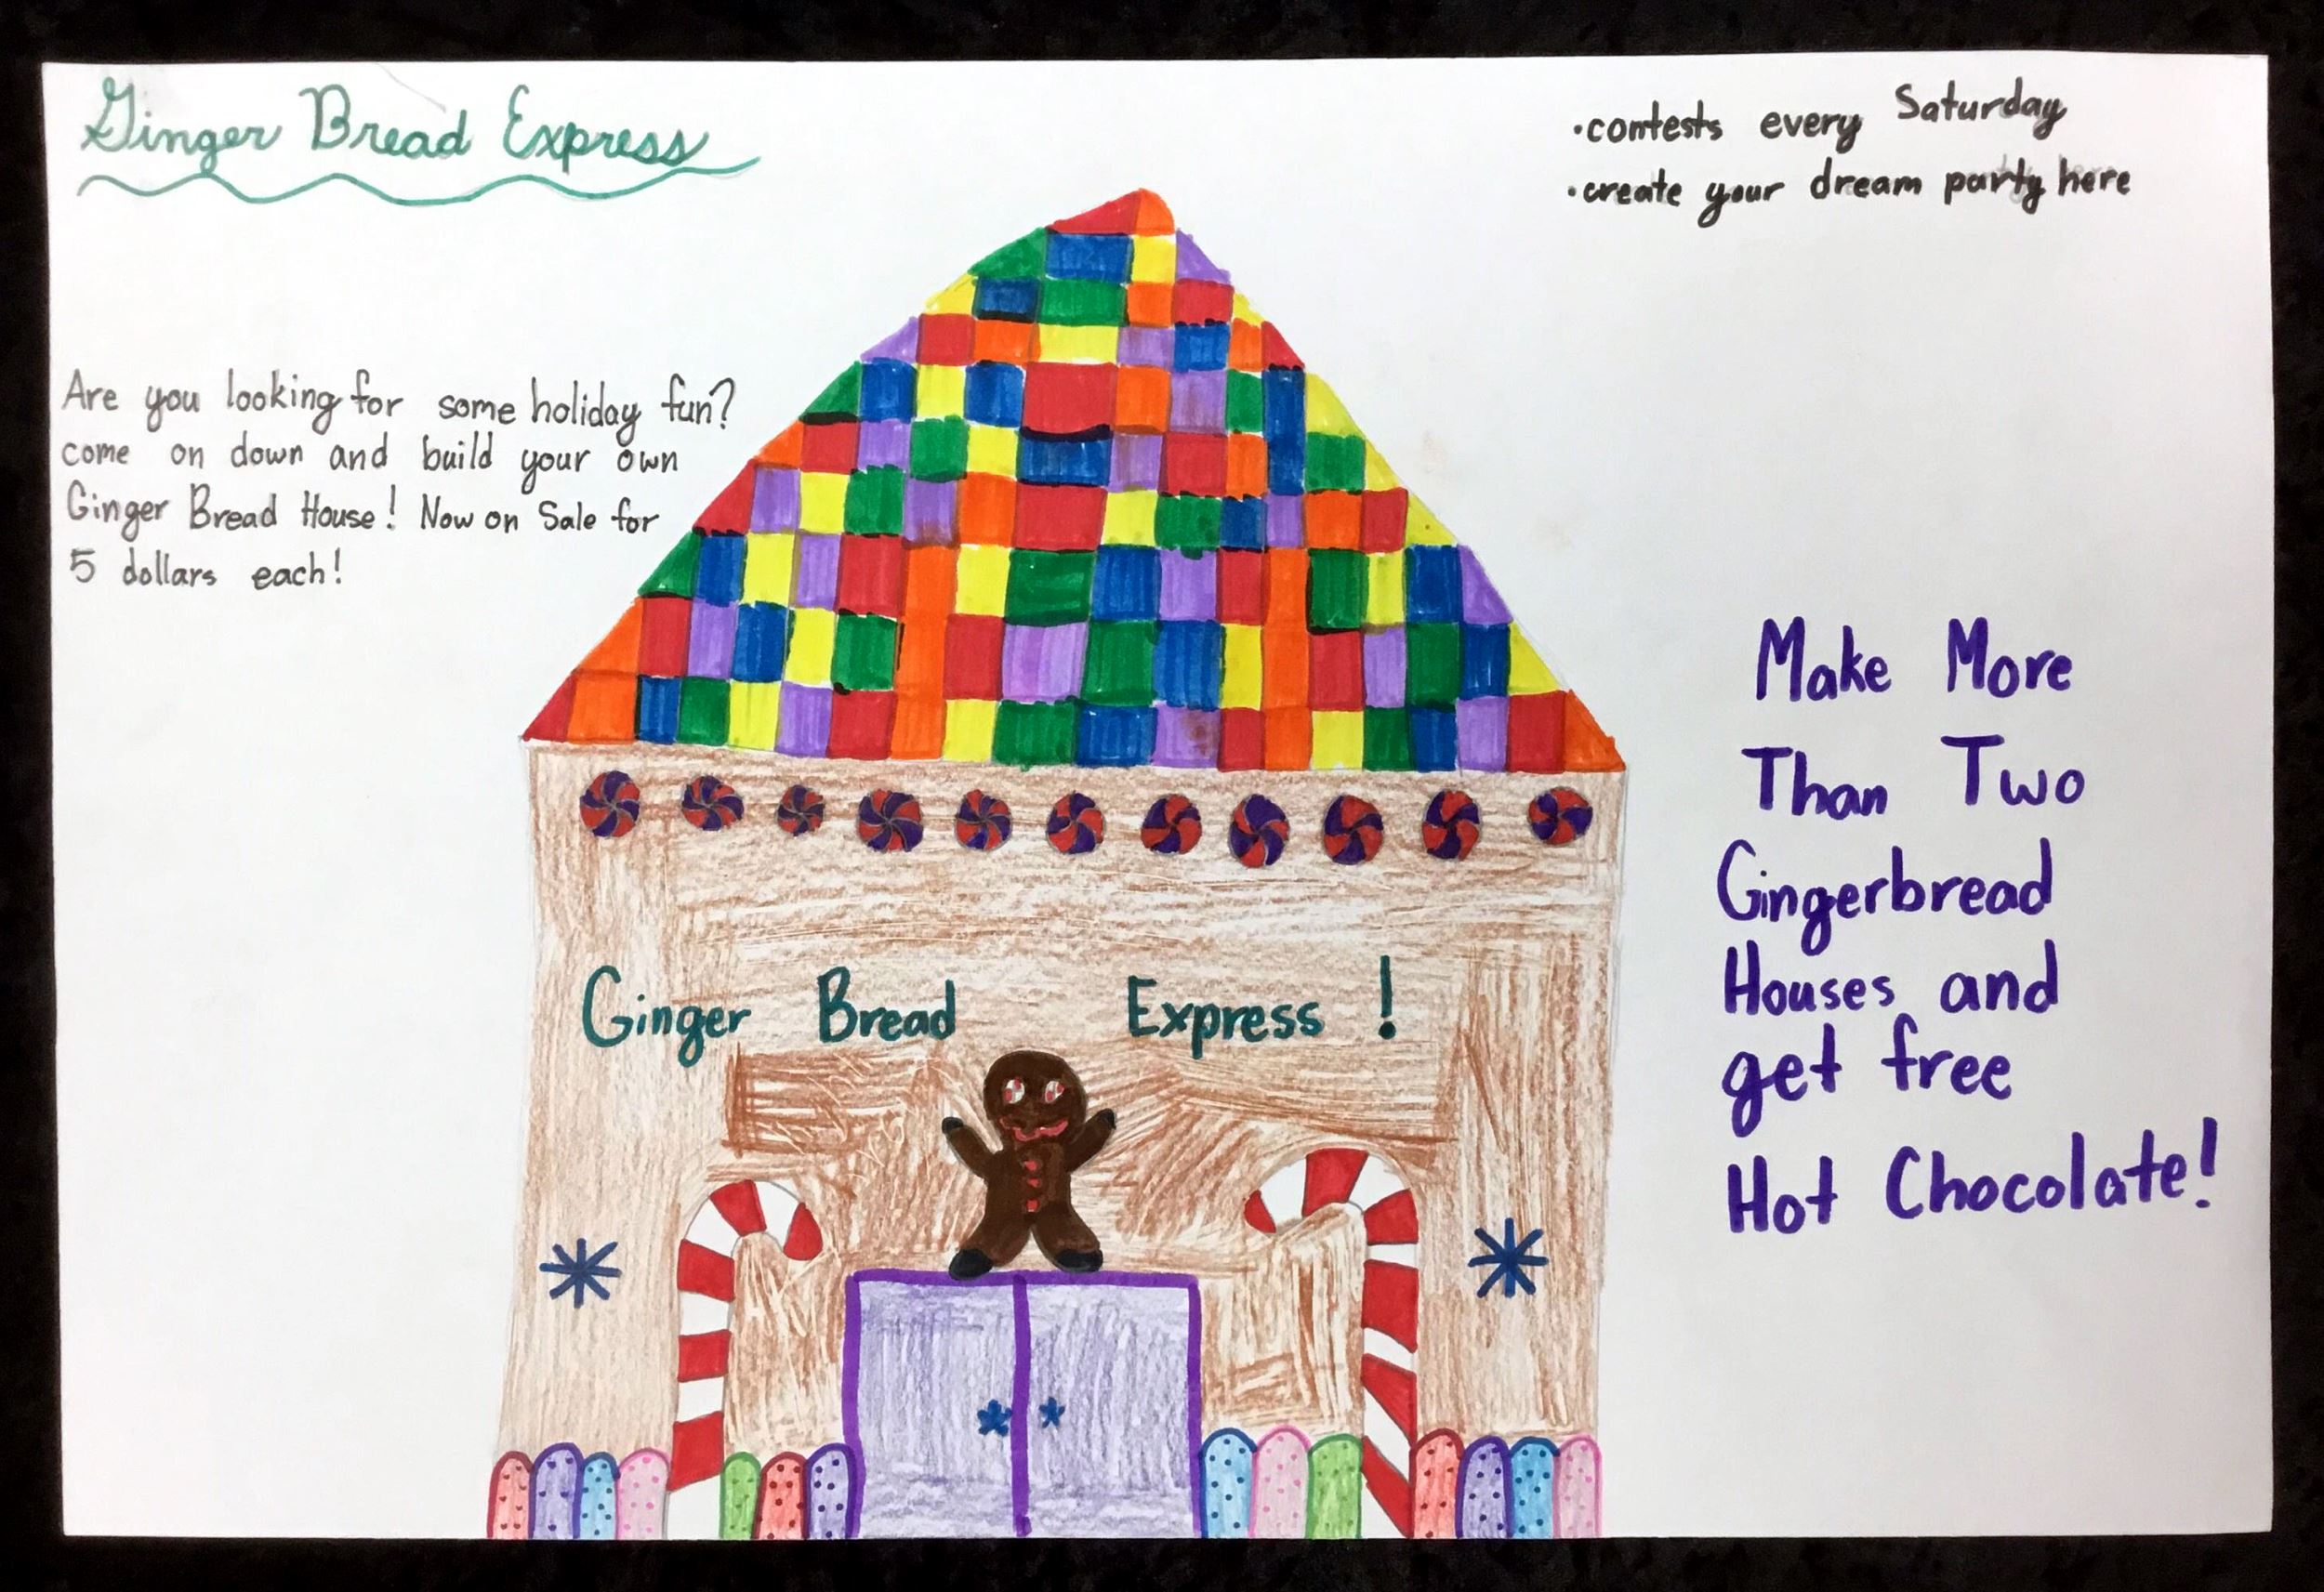 Ginger Bread Express
•contests every Saturday
•create your dream party here
Are you looking for some holiday fun?
come on down and build your own
Ginger Bread House! Now on Sale for
5 dollars each!
Make More
Than Two
Gingerbread
Houses and
get free
Hot Chocolate!
Ginger Bread Express!